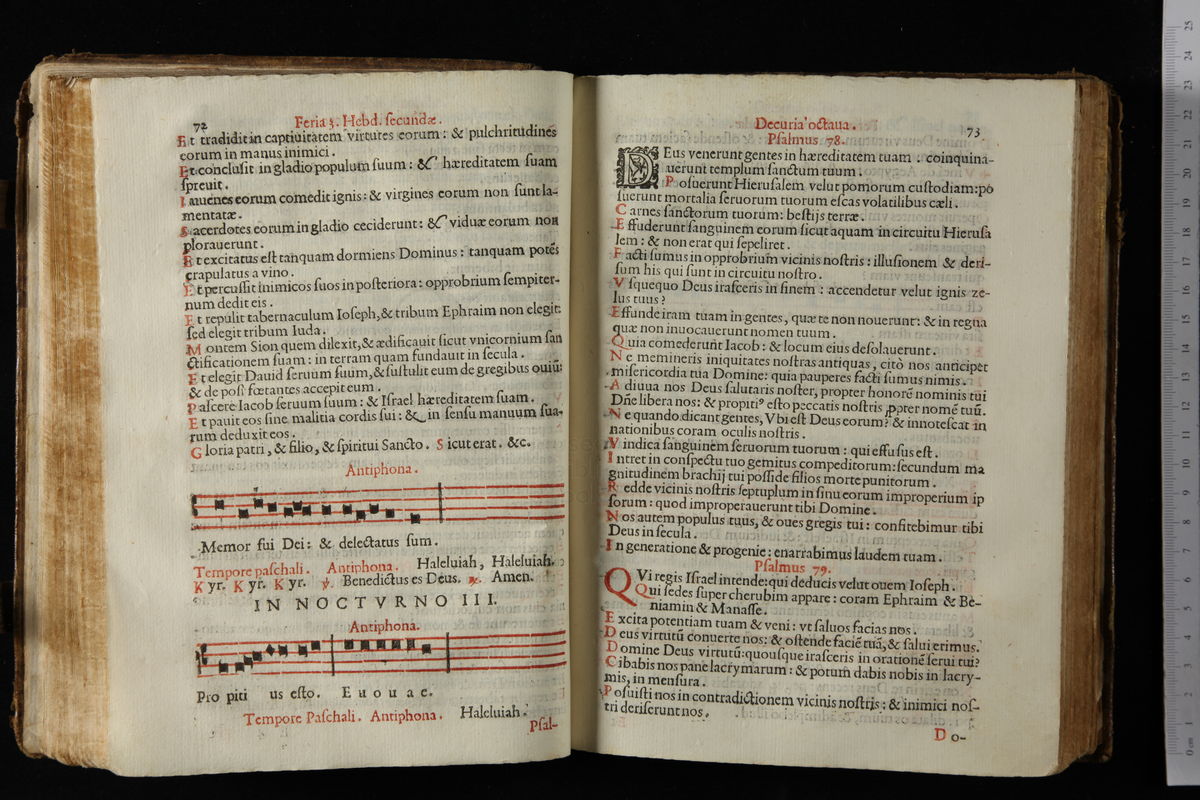 72
Feria 3. Hebd. secundæ.
Et tradidit in captiuitatem virtutes eorum: & pulchritudines
eorum in manus inimici.
Et conclusit in gladio populum suum: & hæreditatem suam
spreuit.
Iuuenes eorum comedit ignis: & virgines eorum non sunt la-
mentatæ.
Sacerdotes eorum in gladio ceciderunt: & viduæ eorum non
plorauerunt.
Et excitatus est tanquam dormiens Dominus: tanquam potēs
crapulatus a vino.
Et percussit inimicos suos in posteriora: opprobrium sempiter-
num dedit eis.
Et repulit tabernaculum Ioseph, & tribum Ephraim non elegit:
sed elegit tribum Iuda.
Montem Sion quem dilexit, & ædificauit sicut vnicornium san
ctificationem suam: in terram quam fundauit in secula.
Et elegit Dauid seruum suum, & sustulit eum de gregibus ouiū:
& de post fœtantes accepit eum.
Pascere Iacob seruum suum: & Israel hæreditatem suam.
Et pauit eos sine malitia cordis sui: & in sensu manuum sua-
rum deduxit eos.
Gloria patri, & filio, & spiritui Sancto. Sicut erat. &c.
Antiphona.
Memor fui Dei: & delectatus sum.
Tempore paschali. Antiphona. Haleluiah, Haleluiah.
Kyr. Kyr. Kyr. ℣. Benedictus es Deus. ℟. Amen.
IN NOCTVRNO III.
Antiphona.
Pro piti us esto. E u o u a e.
Tempore Paschali. Antiphona. Haleluiah.
Psal-
Decuria octaua.
73
Psalmus 78.
DEus venerunt gentes in hæreditatem tuam: coinquina-
uerunt templum sanctum tuum.
Posuerunt Hierusalem velut pomorum custodiam: po
suerunt mortalia seruorum tuorum escas volatilibus cæli.
Carnes sanctorum tuorum: bestijs terræ.
Effuderunt sanguinem eorum sicut aquam in circuitu Hierusa
lem: & non erat qui sepeliret.
Facti sumus in opprobrium vicinis nostris: illusionem & deri-
sum his qui sunt in circuitu nostro.
Vsquequo Deus irasceris in finem: accendetur velut ignis ze-
lus tuus?
Effunde iram tuam in gentes, quæ te non nouerunt: & in regna
quæ non inuocauerunt nomen tuum.
Quia comederunt Iacob: & locum eius desolauerunt.
Ne memineris iniquitates nostras antiquas, citò nos anticipēt
misericordia tua Domine: quia pauperes facti sumus nimis.
Adiuua nos Deus salutaris noster, propter honorē nominis tui
Dñe libera nos: & propitiꝰ esto peccatis nostris ꝓpter nomē tuū.
Ne quando dicant gentes, Vbi est Deus eorum? & innotescat in
nationibus coram oculis nostris.
Vindica sanguinem seruorum tuorum: qui effusus est.
Intret in conspectu tuo gemitus compeditorum: secundum ma
gnitudinem brachij tui posside filios morte punitorum.
Redde vicinis nostris septuplum in sinu eorum improperium ip
sorum: quod improperauerunt tibi Domine.
Nos autem populus tuus, & oues gregis tui: confitebimur tibi
Deus in secula.
In generatione & progenie: enarrabimus laudem tuam.
Psalmus 79.
QVi regis Israel intende: qui deducis velut ouem Ioseph.
Qui sedes super cherubim appare: coram Ephraim & Be-
niamin & Manasse.
Excita potentiam tuam & veni: vt saluos facias nos.
Deus virtutū conuerte nos: & ostende faciē tuā, & salui erimus.
Domine Deus virtutū: quousque irasceris in orationē serui tui?
Cibabis nos pane lacrymarum: & potum dabis nobis in lacry-
mis, in mensura.
Posuisti nos in contradictionem vicinis nostris: & inimici nos-
tri deriserunt nos.
Do-